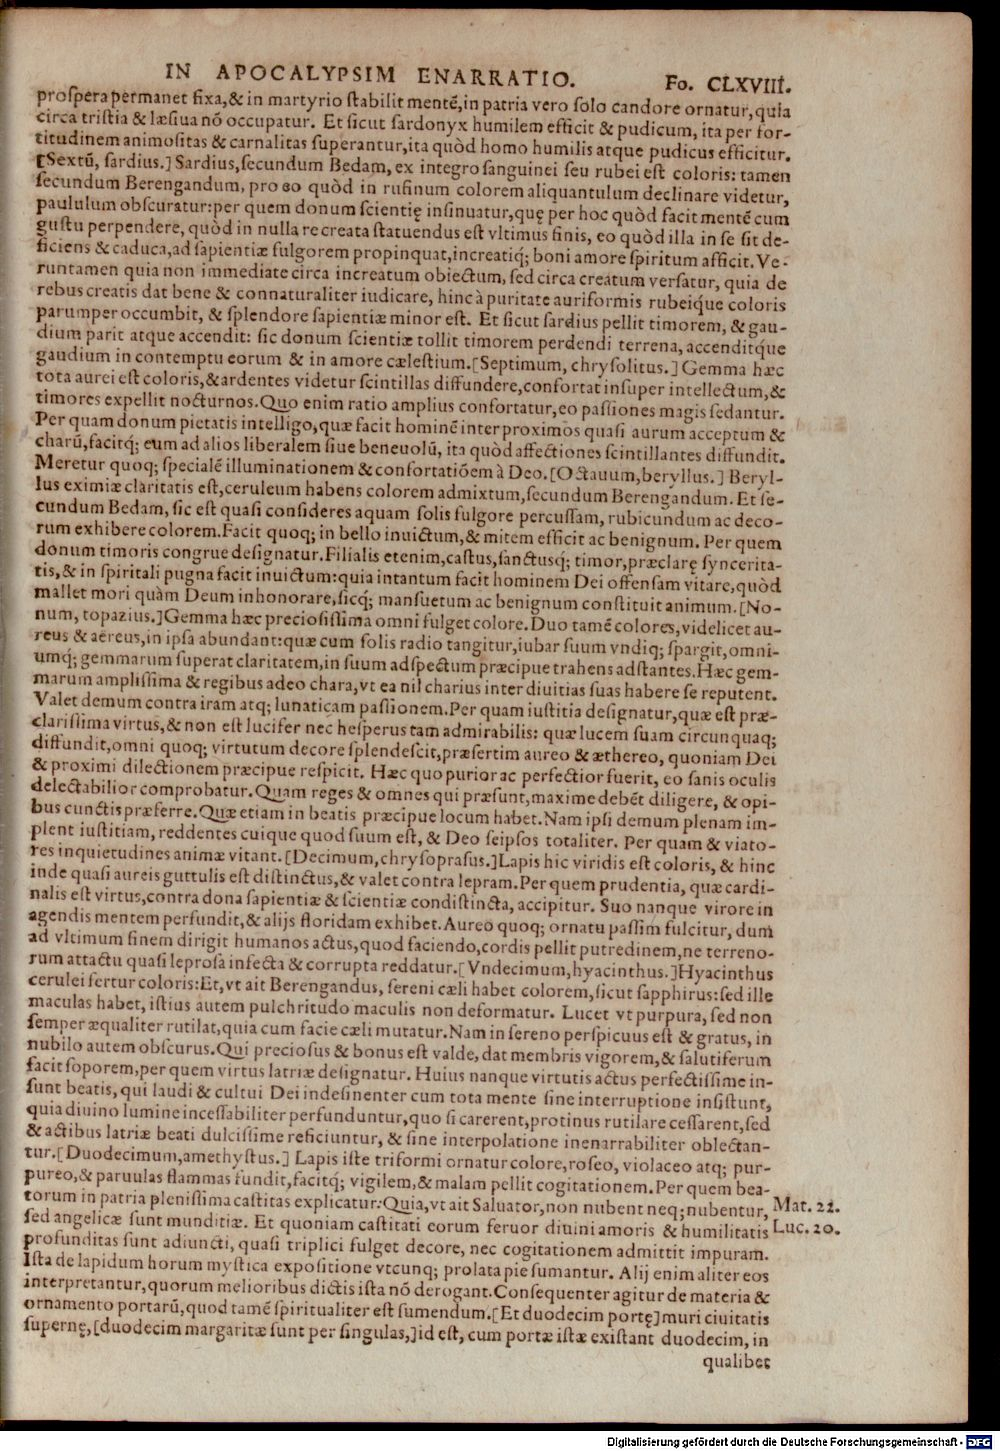 IN APOCALYPSIM ENARRATIO. Fo. CLXVIII.
prospera permanet fixa, & in martyrio stabilit mentē, in patria vero solo candore ornatur, quia
circa tristia & læsiua nō occupatur. Et sicut sardonyx humilem efficit & pudicum, ita per for-
titudinem animositas & carnalitas superantur, ita quòd homo humilis atque pudicus efficitur.
[Sextū, sardius.] Sardius, secundum Bedam, ex integro sanguinei seu rubei est coloris: tamen
secundum Berengandum, pro eo quòd in rufinum colorem aliquantulum declinare videtur,
paululum obscuratur: per quem donum scientię insinuatur, quę per hoc quòd facit mentē cum
gustu perpendere, quòd in nulla re creata statuendus est vltimus finis, eo quòd illa in se sit de-
ficiens & caduca, ad sapientiæ fulgorem propinquat, increatiq; boni amore spiritum afficit. Ve-
runtamen quia non immediate circa increatum obiectum, sed circa creatum versatur, quia de
rebus creatis dat bene & connaturaliter iudicare, hinc à puritate auriformis rubeiq́ue coloris
parumper occumbit, & splendore sapientiæ minor est. Et sicut sardius pellit timorem, & gau-
dium parit atque accendit: sic donum scientiæ tollit timorem perdendi terrena, accenditq́ue
gaudium in contemptu eorum & in amore cælestium. [Septimum, chrysolitus.] Gemma hæc
tota aurei est coloris, & ardentes videtur scintillas diffundere, confortat insuper intellectum, &
timores expellit nocturnos. Quo enim ratio amplius confortatur, eo passiones magis sedantur.
Per quam donum pietatis intelligo, quæ facit hominē inter proximos quasi aurum acceptum &
charū, facitq́; eum ad alios liberalem siue beneuolū, ita quòd affectiones scintillantes diffundit.
Meretur quoq; specialē illuminationem & confortatiōem à Deo. [Octauum, beryllus.] Beryl-
lus eximiæ claritatis est, ceruleum habens colorem admixtum, secundum Berengandum. Et se-
cundum Bedam, sic est quasi consideres aquam solis fulgore percussam, rubicundum ac deco-
rum exhibere colorem. Facit quoq; in bello inuictum, & mitem efficit ac benignum. Per quem
donum timoris congrue designatur. Filialis etenim, castus, sanctusq́; timor, præclarę synceri ta-
tis, & in spiritali pugna facit inuictum: quia intantum facit hominem Dei offensam vitare, quòd
mallet mori quàm Deum inhonorare, sicq́; mansuetum ac benignum constituit animum. [No-
num, topazius.] Gemma hæc preciosissima omni fulget colore. Duo tamē colores, videlicet au-
reus & aëreus, in ipsa abundant: quæ cum solis radio tangitur, iubar suum vndiq; spargit, omni-
umq́; gemmarum superat claritatem, in suum adspectum præcipue trahens adstantes. Hæc gem-
marum amplissima & regibus adeo chara, vt ea nil charius inter diuitias suas habere se reputent.
Valet demum contra iram atq; lunaticam passionem. Per quam iustitia designatur, quæ est præ-
clarissima virtus, & non est lucifer nec hesperus tam admirabilis: quæ lucem suam circunquaq;
diffundit, omni quoq; virtutum decore splendescit, præsertim aureo & æthereo, quoniam Dei
& proximi dilectionem præcipue respicit. Hæc quo purior ac perfectior fuerit, eo sanis oculis
delectabilior comprobatur. Quam reges & omnes qui præsunt, maxime debēt diligere, & opi-
bus cunctis præferre. Quæ etiam in beatis præcipue locum habet. Nam ipsi demum plenam im-
plent iustitiam, reddentes cuique quod suum est, & Deo seipsos totaliter. Per quam & viato-
res inquietudines animæ vitant. [Decimum, chrysoprasus.] Lapis hic viridis est coloris, & hinc
inde quasi aureis guttulis est distinctus, & valet contra lepram. Per quem prudentia, quæ cardi-
nalis est virtus, contra dona sapientiæ & scientiæ condistincta, accipitur. Suo nanque virore in
agendis mentem perfundit, & alijs floridam exhibet. Aureo quoq; ornatu passim fulcitur, dum
ad vltimum finem dirigit humanos actus, quod faciendo, cordis pellit putredinem, ne terreno-
rum attactu quasi leprosa infecta & corrupta reddatur. [Vndecimum, hyacinthus.] Hyacinthus
cerulei fertur coloris: Et, vt ait Berengandus, sereni cæli habet colorem, sicut sapphirus: sed ille
maculas habet, istius autem pulchritudo maculis non deformatur. Lucet vt purpura, sed non
semper æqualiter rutilat, quia cum facie cæli mutatur. Nam in sereno perspicuus est & gratus, in
nubilo autem obscurus. Qui preciosus & bonus est valde, dat membris vigorem, & salutiferum
facit soporem, per quem virtus latriæ designatur. Huius nanque virtutis actus perfectissime in-
sunt beatis, qui laudi & cultui Dei indesinenter cum tota mente sine interruptione insistunt,
quia diuino lumine incessabiliter perfunduntur, quo si carerent, protinus rutilare cessarent, sed
& actibus latriæ beati dulcissime reficiuntur, & sine interpolatione inenarrabiliter oblectan-
tur. [Duodecimum, amethystus.] Lapis iste triformi ornatur colore, roseo, violaceo atq; pur-
pureo, & paruulas flammas fundit, facitq́; vigilem, & malam pellit cogitationem. Per quem bea-
torum in patria plenissima castitas explicatur: Quia, vt ait Saluator, non nubent neq; nubentur, Mat. 22.
sed angelicæ sunt munditiæ. Et quoniam castitati eorum feruor diuini amoris & humilitatis Luc. 20.
profunditas sunt adiuncti, quasi triplici fulget decore, nec cogitationem admittit impuram.
Ista de lapidum horum mystica expositione vtcunq; prolata pie sumantur. Alij enim aliter eos
interpretantur, quorum melioribus dictis ista nō derogant. Consequenter agitur de materia &
ornamento portarū, quod tamē spiritualiter est sumendum. [Et duodecim portę] muri ciuitatis
supernę, [duodecim margaritæ sunt per singulas,] id est, cum portæ istæ existant duodecim, in
qualibet
Digitalisierung gefördert durch die Deutsche Forschungsgemeinschaft - DFG